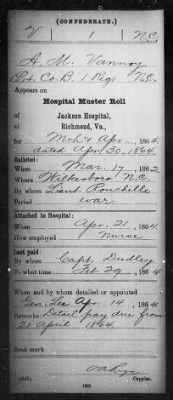 (CONFEDERATE.)
V 1 N.C.
A. M. Vannoy
Pvt. Co. B. 1 Regt N.C.
Appears on
Hospital Muster Roll
of
Jackson Hospital,
Richmond, Va.,
for Mch & Apr, 1864
dated Apr. 30, 1864.
Enlisted:
When Mar. 17, 1862
Where Wilkesboro N.C.
By whom Lieut
Period war
Attached to Hospital:
When Apr. 21, 1864
How employed Nurse
Last paid:
By whom Capt. Dudley
To what time Feb 29, 1864
When and by whom detailed or appointed
Gen. Lee Apr. 14, 1864
Remarks: Detail pay due from
21 April 1864.
Book mark:
Copyist.